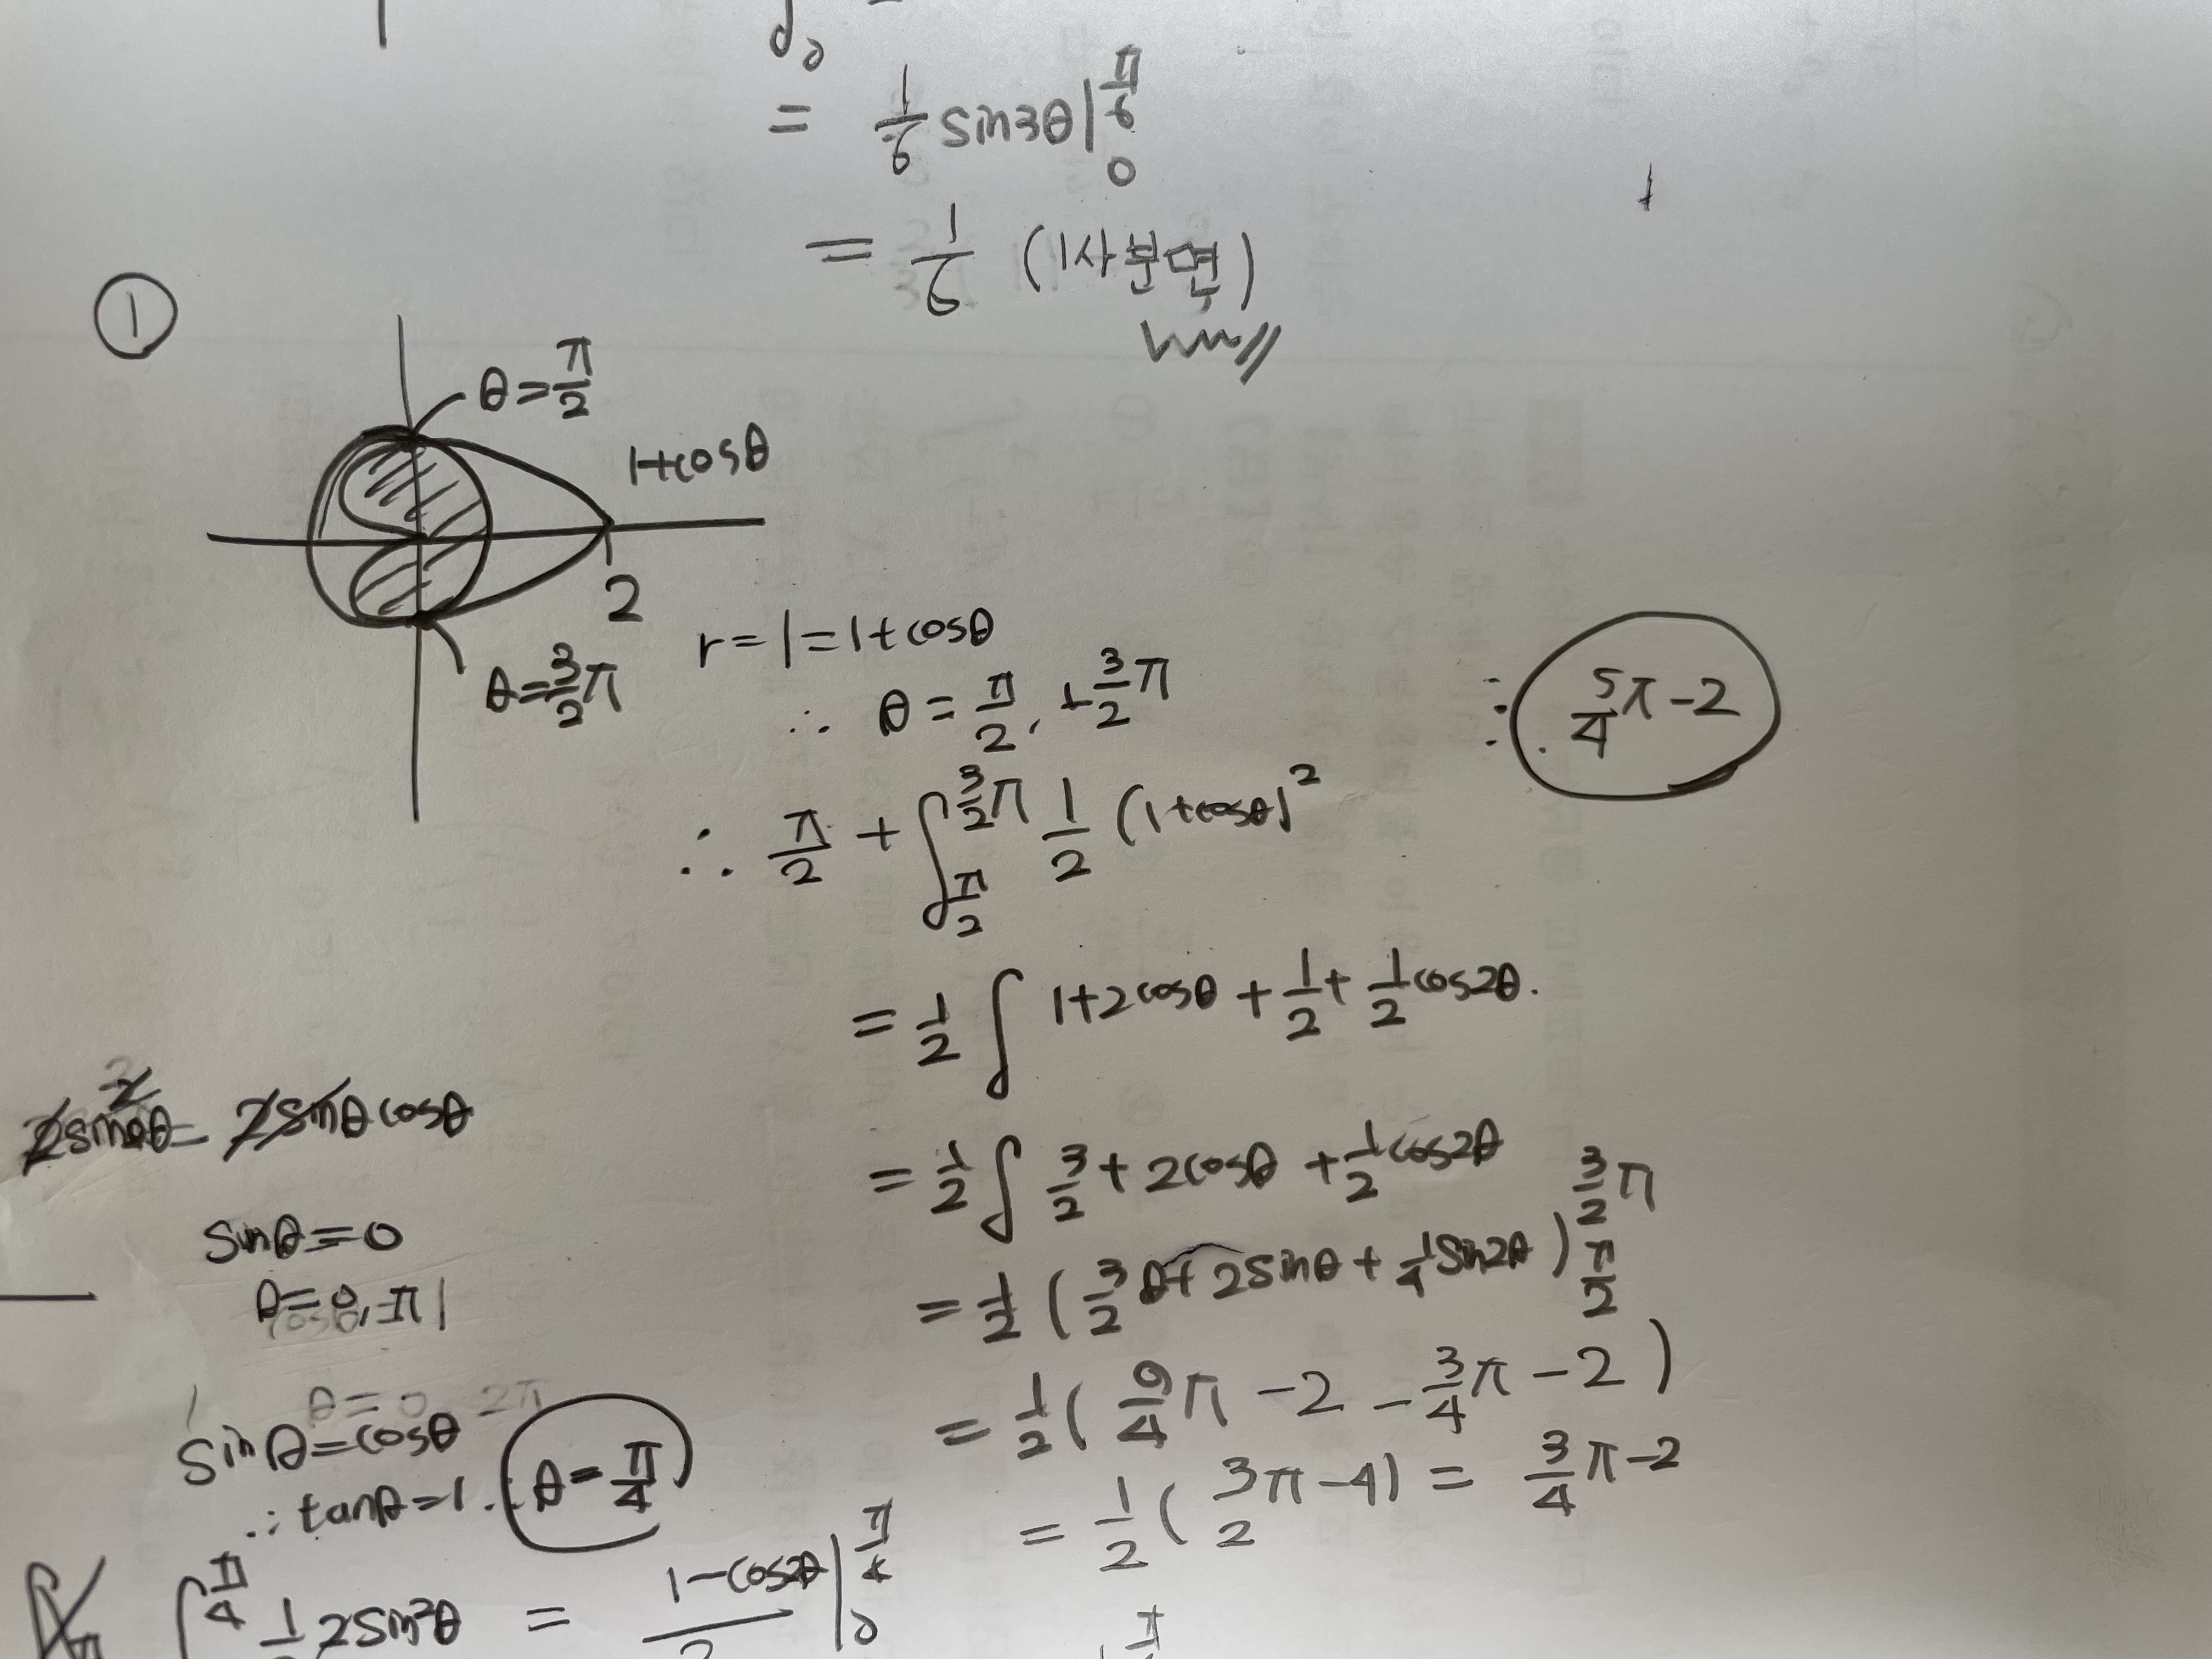 = 1/6 sin3θ |_0^{π/6}
= 1/6 (1사분면)
①
θ = π/2
1+cosθ
2
θ = 3/2 π
r = 1 = 1+cosθ
∴ θ = π/2, 3/2 π
∴ 5/4 π - 2
∴ π/2 + ∫_{π/2}^{3/2 π} 1/2 (1+cosθ)^2
= 1/2 ∫ 1+2cosθ + 1/2 + 1/2 cos2θ.
= 1/2 ∫ 3/2 + 2cosθ + 1/2 cos2θ
= 1/2 ( 3/2 θ + 2sinθ + 1/4 sin2θ )_{π/2}^{3/2 π}
= 1/2 ( 9/4 π - 2 - 3/4 π - 2 )
= 1/2 ( 3/2 π - 4 ) = 3/4 π - 2
2sin^2θ = 2sinθcosθ
sinθ = 0
θ = 0, π
θ = 0, 2π
sinθ = cosθ
∴ tanθ = 1 ∴ θ = π/4
2sin^2θ = 1-cos2θ